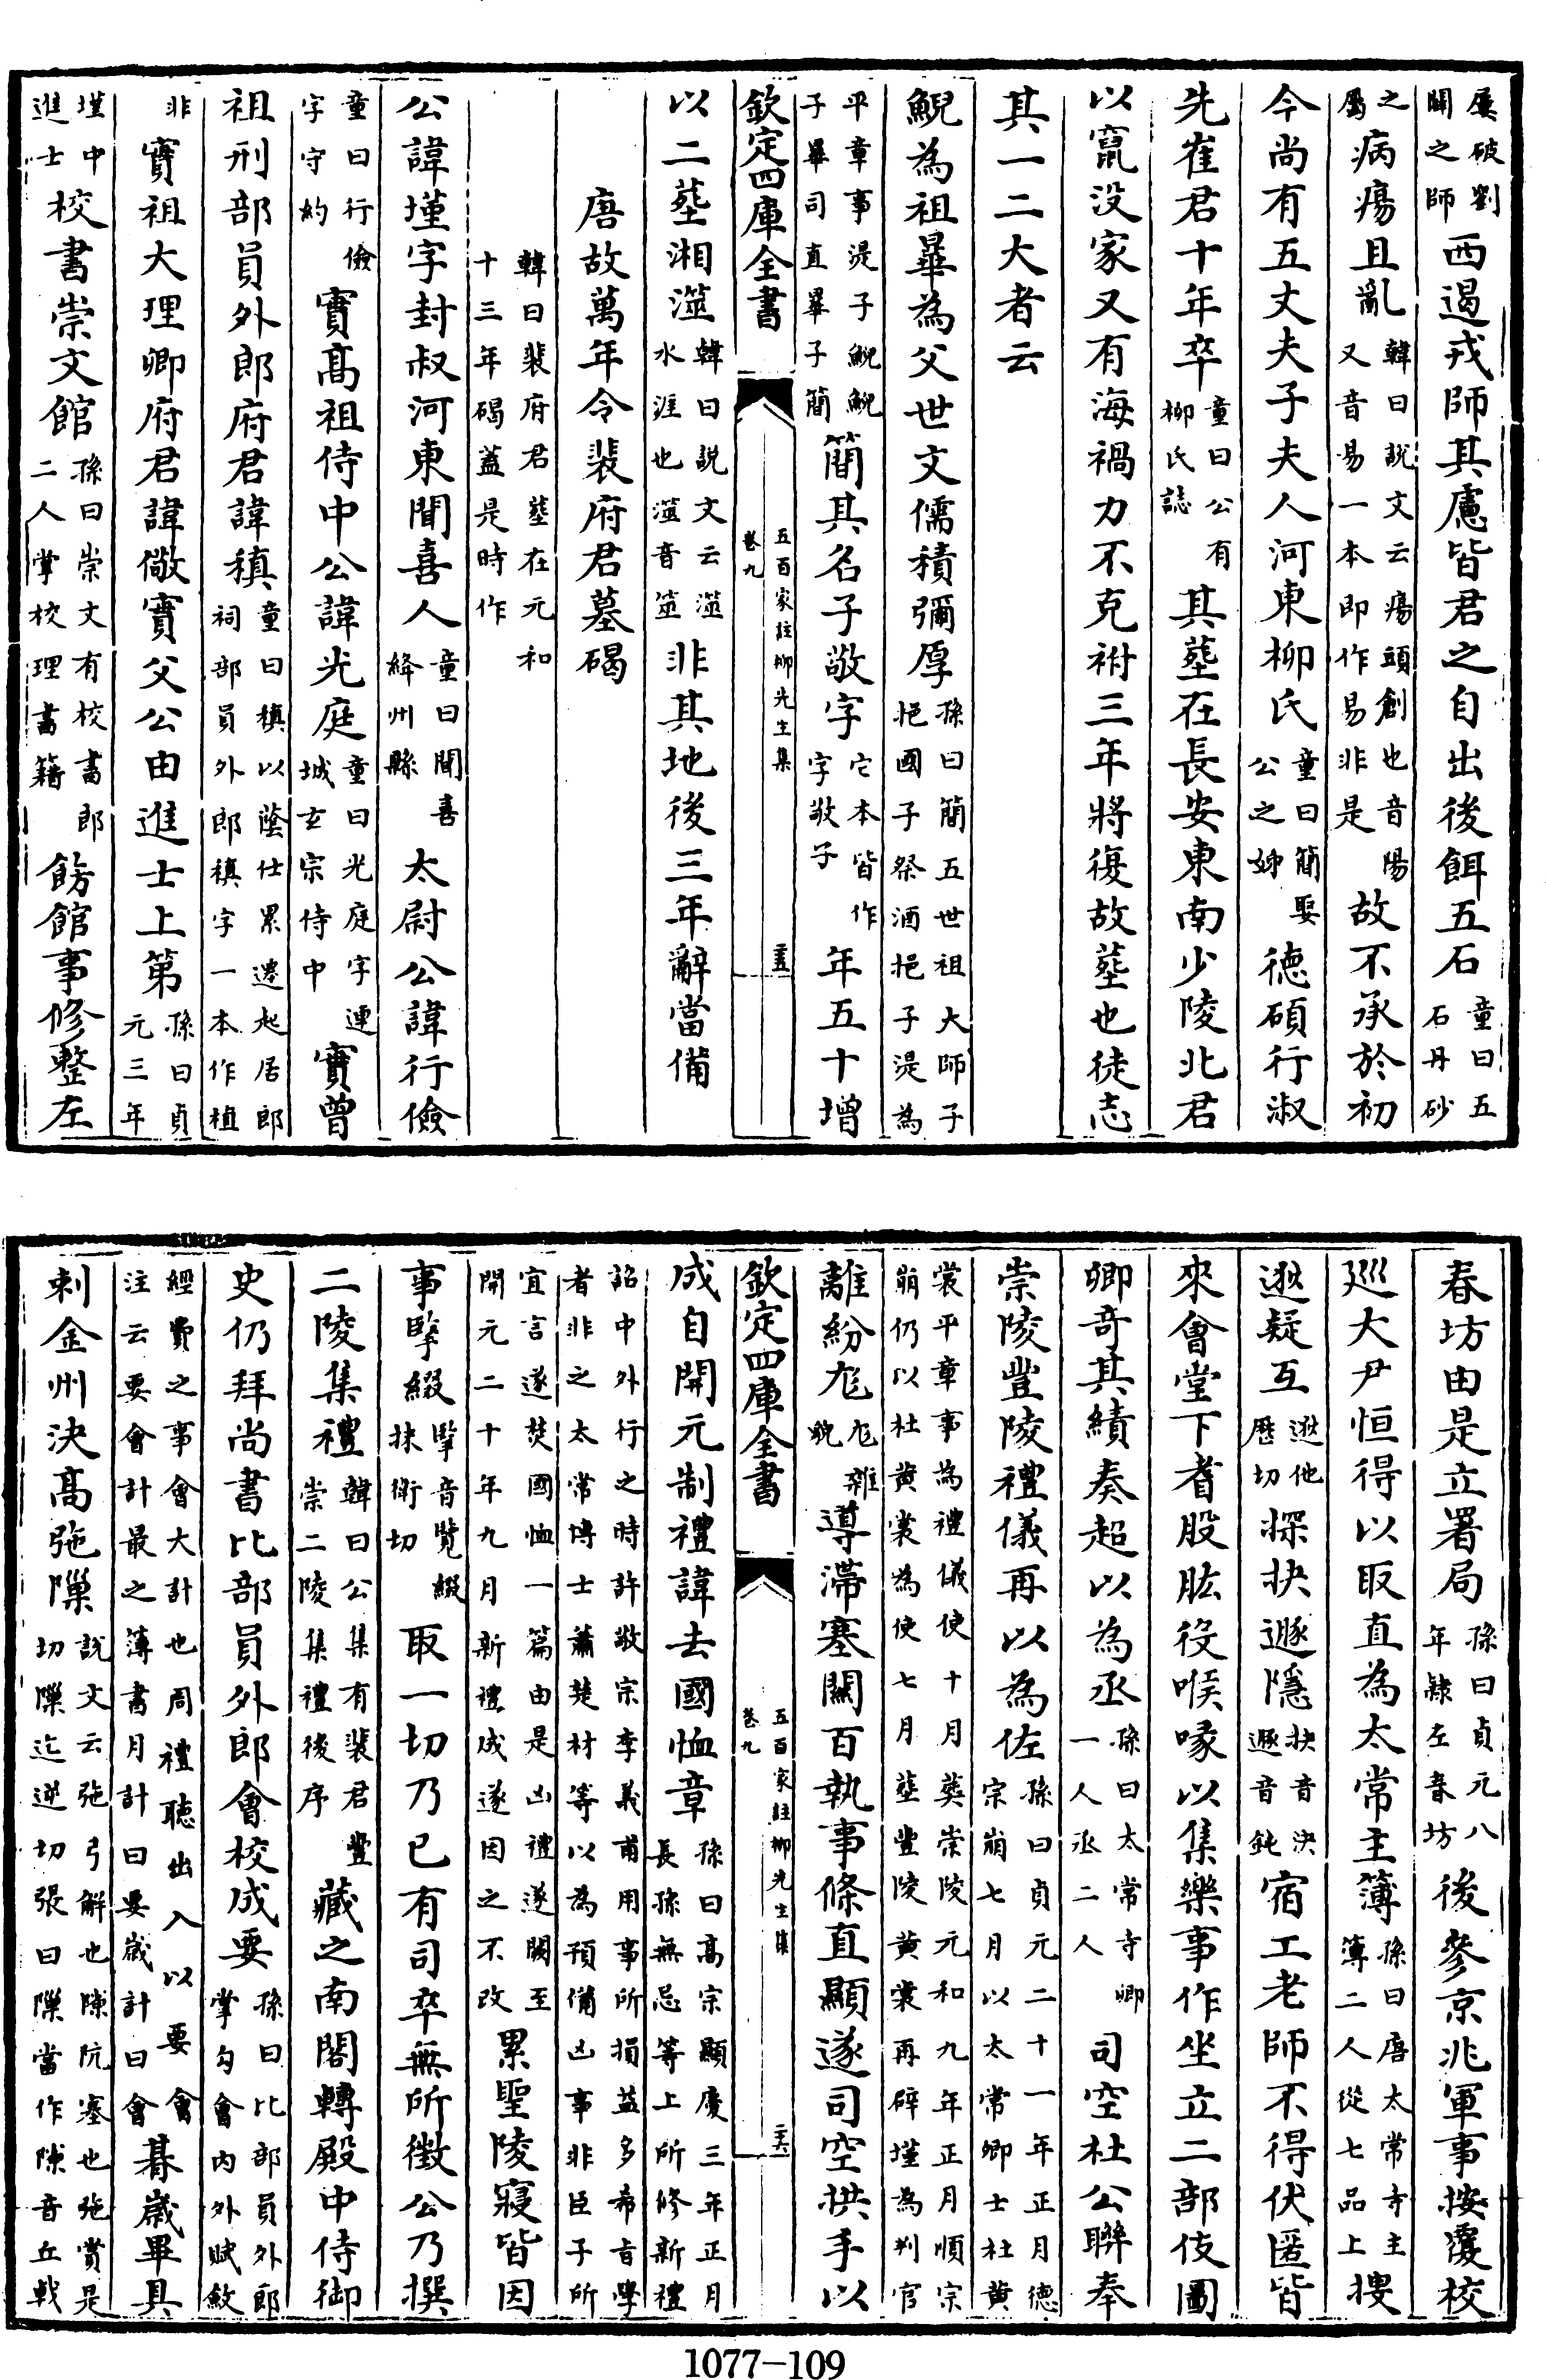 屢破劉闢之師西遏戎師其慮皆君之自出後餌五石童曰五石丹砂
之屬病瘍且亂韓曰説文云瘍頭創也音陽又音易一本即作易非是故不承於初
今尚有五丈夫子夫人河東柳氏童曰簡娶公之姊德碩行淑
先崔君十年卒童曰公有柳氏誌其塟在長安東南少陵北君
以竄没家又有海禍力不克祔三年將復故塟也徒志
其一二大者云
鯢為祖曅為父世文儒積彌厚孫曰簡五世祖大師子挹國子祭酒挹子湜為
平章事湜子鯢鯢子曅司直曅子簡簡其名子敬字它本皆作字敬子年五十增
欽定四庫全書
五百家註柳先生集
卷九
二十五
以二塟湘澨韓曰説文云澨水涯也澨音筮非其地後三年辭當備
唐故萬年令裴府君墓碣
韓曰裴府君塟在元和十三年碣蓋是時作
公諱墐字封叔河東聞喜人童曰聞喜絳州縣太尉公諱行儉
童曰行儉字守約實髙祖侍中公諱光庭童曰光庭字連城玄宗侍中實曾
祖刑部員外郎府君諱稹童曰稹以蔭仕累遷起居郎祠部員外郎稹字一本作植
非實祖大理卿府君諱儆實父公由進士上第孫曰貞元三年
墐中進士校書崇文館孫曰崇文有校書郎二人掌校理書籍飭館事修整左
春坊由是立署局孫曰貞元八年隸左春坊後參京兆軍事按覆校
巡大尹恒得以取直為太常主簿孫曰唐太常寺主簿二人從七品上搜
逖疑互逖他歴切探抉遯隱抉音決遯音鈍宿工老師不得伏匿皆
來會堂下耆股肱役喉喙以集樂事作坐立二部伎圖
卿竒其績奏超以為丞孫曰太常寺卿一人丞二人司空杜公聯奉
崇陵豐陵禮儀再以為佐孫曰貞元二十一年正月德宗崩七月以太常卿士杜黄
裳平章事為禮儀使十月葬崇陵元和九年正月順宗崩仍以杜黄裳為使七月塟豐陵黄裳再辟墐為判官
離紛尨尨雜貎導滯塞關百執事條直顯遂司空拱手以
欽定四庫全書
五百家註柳先生集
卷九
二十六
成自開元制禮諱去國恤章孫曰髙宗顯慶三年正月長孫無忌等上所修新禮
詔中外行之時許敬宗李義甫用事所損益多希旨學者非之太常博士蕭楚材等以為預備凶事非臣子所
宜言遂焚國恤一篇由是凶禮遂闕至開元二十年九月新禮成遂因之不改累聖陵寢皆因
事㩜綴㩜音覽綴抶衛切取一切乃已有司卒無所徵公乃撰
二陵集禮韓曰公集有裴君豐崇二陵集禮後序藏之南閣轉殿中侍御
史仍拜尚書比部員外郎會校成要孫曰比部員外郎掌勾會內外賦斂
經費之事會大計也周禮聽出入以要會注云要會計最之簿書月計曰要歲計曰會朞歲畢具
刺金州決髙弛隟説文云弛弓解也陳阬塞也弛賞是切隟迄逆切張曰隟當作隙音丘戟
1077-109